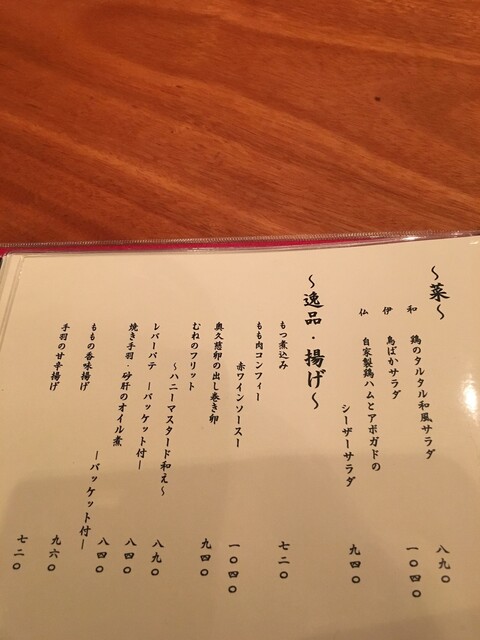 〜菜〜
和 鶏のタルタル和風サラダ 八九〇
伊 鳥ばかサラダ 一〇四〇
仏 自家製鶏ハムとアボガドの
シーザーサラダ 九四〇
〜逸品・揚げ〜
もつ煮込み 七二〇
もも肉コンフィー
赤ワインソースー 一〇四〇
奥久慈卵の出し巻き卵 九四〇
むねのフリット
〜ハニーマスタード和え〜 八九〇
レバーパテ ーバッケット付ー 八四〇
焼き手羽・砂肝のオイル煮
ーバッケット付ー 八四〇
ももの香味揚げ 九六〇
手羽の甘辛揚げ 七二〇